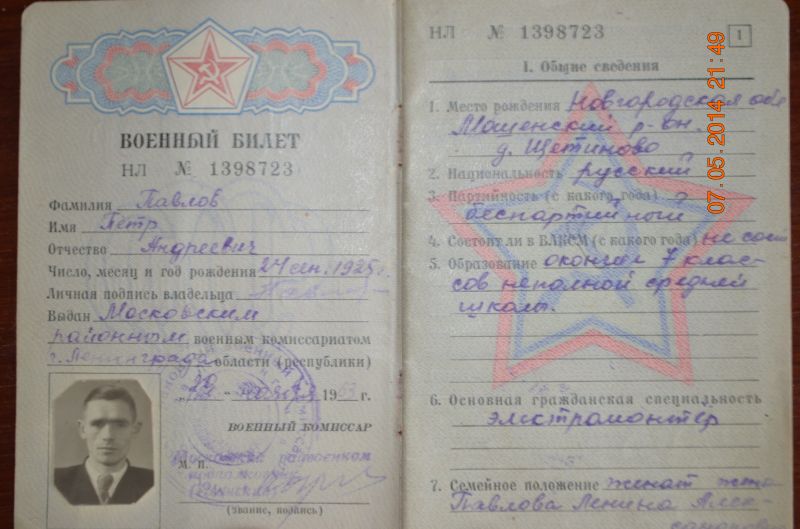 ВОЕННЫЙ БИЛЕТ
НЛ № 1398723
Фамилия Павлов
Имя Петр
Отчество Андреевич
Число, месяц и год рождения 24 сен. 1925 г.
Личная подпись владельца
Выдан Московским
районным военным комиссариатом
г. Ленинграда области (республики)
1963 г.
ВОЕННЫЙ КОМИССАР
М. п.
(звание, подпись)
НЛ № 1398723
1
I. Общие сведения
1. Место рождения Новгородская обл
Мошенский р-он.
д. Щетиново
2. Национальность русский
3. Партийность (с какого года)
беспартийный
4. Состоит ли в ВЛКСМ (с какого года) не сост
5. Образование окончил 7 клас-
сов неполной средней
школы.
6. Основная гражданская специальность
электромонтёр
7. Семейное положение женат жена
Павлова Ленина Алек-
07.05.2014 21:49